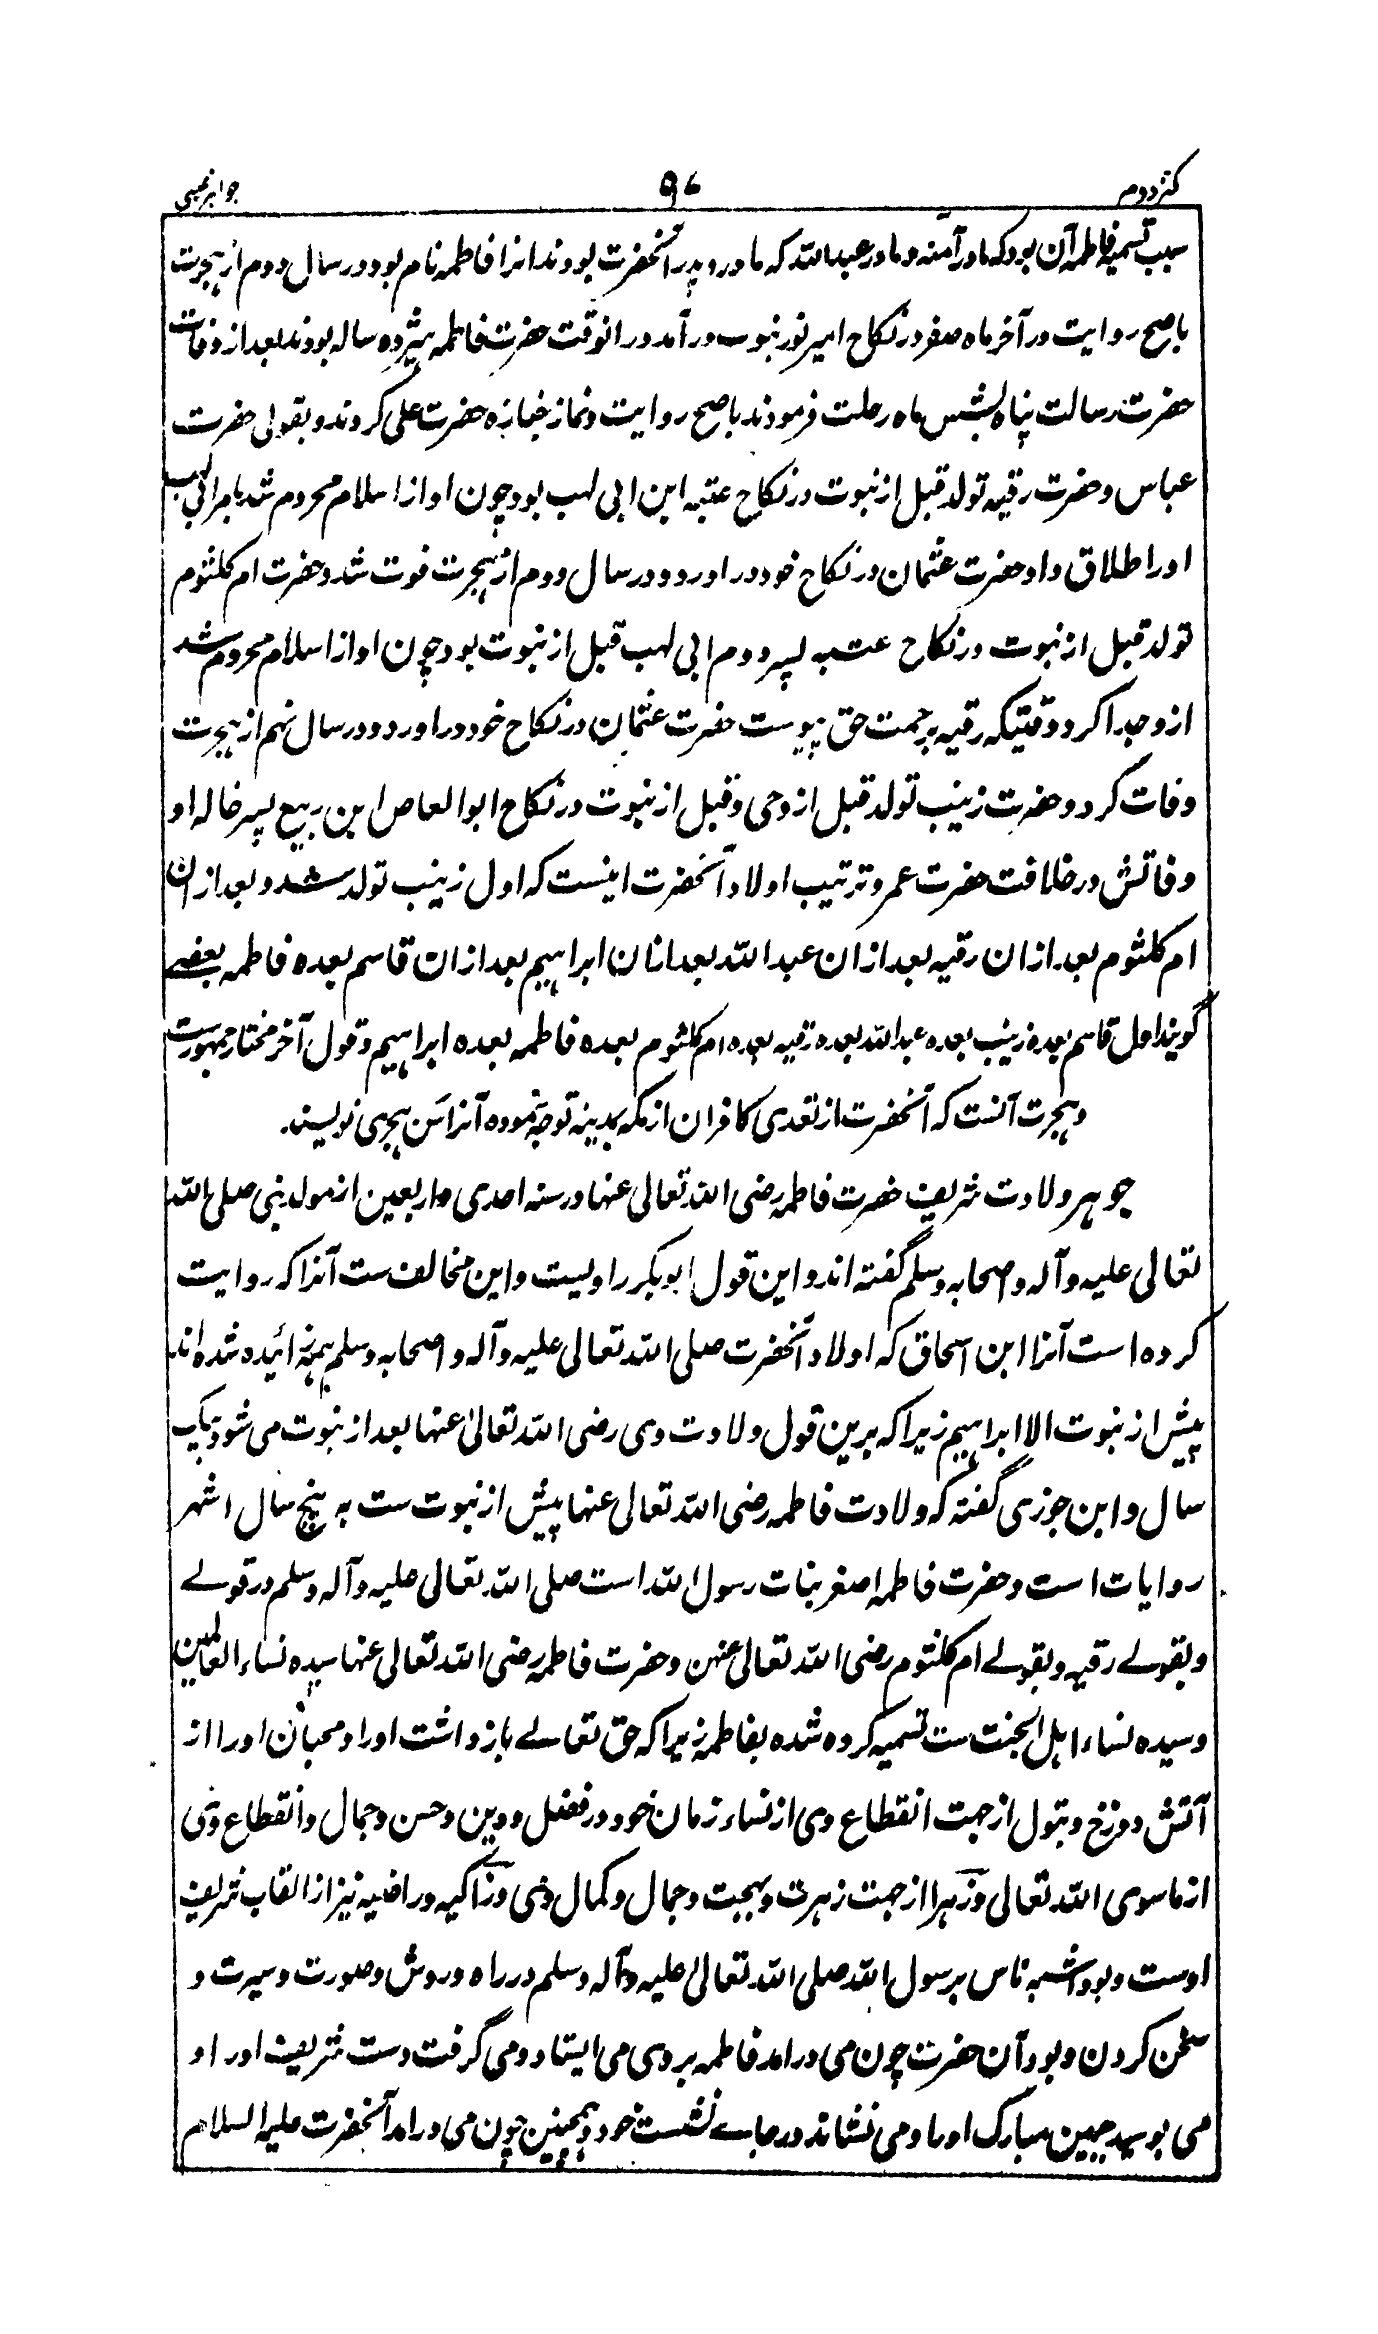 کنز دوم ۹۷ جواهر غیبی
سبب تسمیه فاطمه آن بود که مادر آمنه و مادر عبدالله که مادر و پدر آنحضرت بودند انرا فاطمه نام بود و در سال دوم از هجرت
باصح روایت در آخر ماه صفر در نکاح امیر نور نبوت در آمد در انوقت حضرت فاطمه هیژده ساله بودند بعد از وفات
حضرت رسالت پناه بشش ماه رحلت فرمودند باصح روایت و نماز جنازه حضرت علی کردند و بقولی حضرت
عباس و حضرت رقیه تولد قبل از نبوت در نکاح عتبه ابن ابی لهب بود چون او از اسلام محروم شد بامر ابی لهب
اورا طلاق داد حضرت عثمان در نکاح خود در اورد و در سال دوم از هجرت فوت شد و حضرت ام کلثوم
تولد قبل از نبوت در نکاح عتبه پسر دوم ابی لهب قبل از نبوت بود چون او از اسلام محروم شد
ازو جدا کرد و قتیکه رقیه برحمت حق پیوست حضرت عثمان در نکاح خود در اورد و در سال نهم از هجرت
وفات کرد و حضرت زینب تولد قبل از وحی و قبل از نبوت در نکاح ابوالعاص ابن ربیع پسر خاله او
وفاتش در خلافت حضرت عمر و ترتیب اولاد آنحضرت اینست که اول زینب تولد شد و بعد از ان
ام کلثوم بعد ازان رقیه بعد از ان عبدالله بعد ازان ابراهیم بعد ازان قاسم بعده فاطمه بعضے
گویند اول قاسم بعده زینب بعده عبدالله بعده رقیه بعده ام کلثوم بعده فاطمه بعده ابراهیم و قول آخر مختار جمهورست
و هجرت آنست که آنحضرت از تعدی کافران از مکه بمدینه توجه نموده آنرا سن هجری نویسند.
جوهر ولادت شریف حضرت فاطمه رضی الله تعالی عنها در سنه احدی و اربعین از مولد نبی صلی الله
تعالی علیه و آله و اصحابه وسلم گفته اند و این قول ابوبکر راویست و این مخالف ست آنرا که روایت
کرده است آنرا ابن اسحاق که اولاد آنحضرت صلی الله تعالی علیه و آله و اصحابه وسلم همه زائیده شده اند
پیش از نبوت الا ابراهیم زیرا که برین قول ولادت وی رضی الله تعالیٰ عنها بعد از نبوت می شود بیک
سال و ابن جوزی گفته که ولادت فاطمه رضی الله تعالی عنها پیش از نبوت ست به پنج سال اشهر
روایات است و حضرت فاطمه اصغر بنات رسول الله است صلی الله تعالی علیه و آله وسلم در قولے
و بقولے رقیه و بقولے ام کلثوم رضی الله تعالی عنهن و حضرت فاطمه رضی الله تعالی عنها سیده نساء العالمین
و سیده نساء اهل الجنت ست تسمیه کرده شده بفاطمه زیرا که حق تعالے باز داشت اورا و محبان اورا از
آتش دوزخ و بتول از جهت انقطاع وی از نساء زمان خود در فضل و دین و حسن و جمال و انقطاع وی
از ماسوی الله تعالی و زهرا از جهت زهرت و بهجت و جمال و کمال وی و زاکیه و راضیه نیز از القاب شریف
اوست و بود اشبه ناس برسول الله صلی الله تعالیٰ علیه و آله وسلم در راه و روش و صورت و سیرت و
سخن کردن و بود آن حضرت چون می درامد فاطمه بر وی می ایستاد و می گرفت دست شریف اورا و
می بوسید جبین مبارک اورا و می نشاند در جاے نشست خود و همچنین چون می درامد آنحضرت علیه السلام